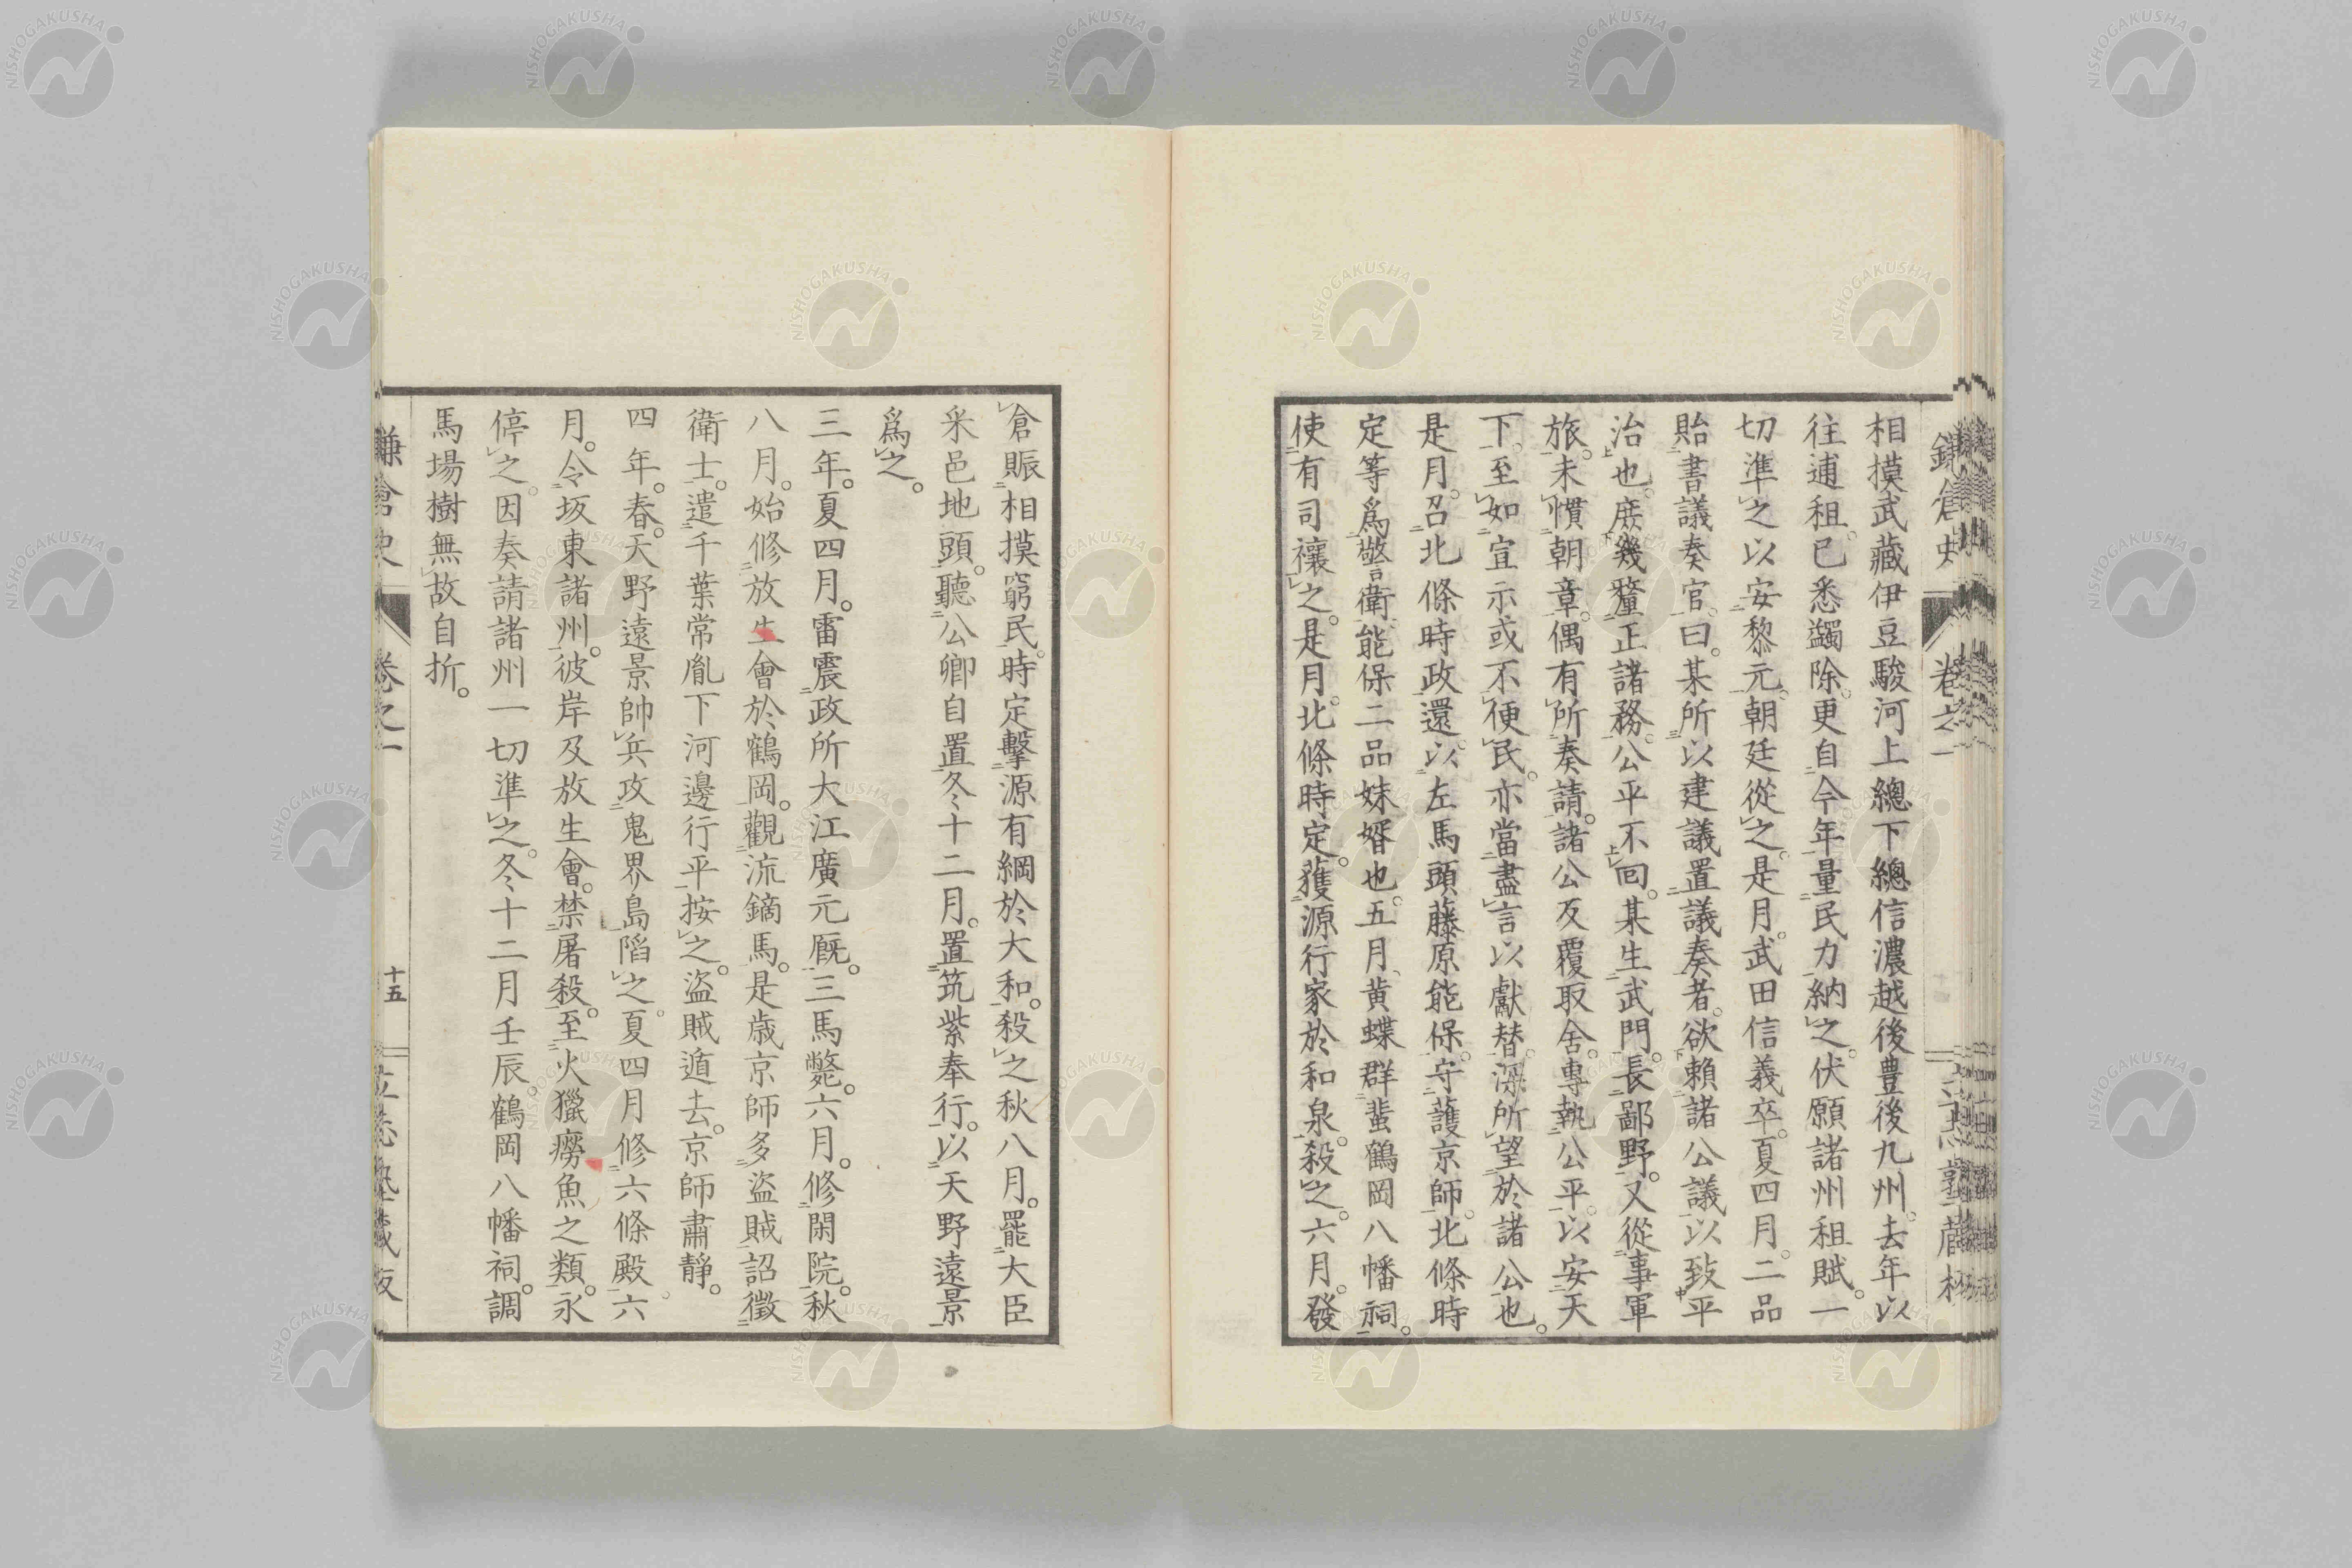 鎌倉史 卷之一
相摸武藏伊豆駿河上總下總信濃越後豊後九州。去年以
往逋租。已悉蠲除。更自今年量民力納之。伏願諸州租賦。一
切準之以安黎元。朝廷從之。是月。武田信義卒。夏四月。二品
貽書議奏官。曰。某所以建議置議奏者。欲賴諸公議以致平
治也。庶幾釐正諸務。公平不回。某生武門。長鄙野。又從事軍
旅。未慣朝章。偶有所奏請。諸公反覆取舍。專執公平。以安天
下。至如宣示或不便民。亦當盡言以獻替。深所望於諸公也。
是月。召北條時政還。以左馬頭藤原能保。守護京師。北條時
定等爲警衛。能保二品妹婿也。五月、黄蝶群蜚鶴岡八幡祠。
使有司禳之。是月。北條時定。獲源行家於和泉。殺之。六月。發
倉賑相摸窮民。時定擊源有綱於大和。殺之秋八月。罷大臣
采邑地頭。聽公卿自置冬十二月。置筑紫奉行。以天野遠景
爲之。
三年。夏四月。雷震政所大江廣元厩。三馬斃。六月。修閑院。秋
八月。始修放生會於鶴岡。觀流鏑馬。是歳京師多盜賊詔徵
衛士。遣千葉常胤下河邊行平按之。盜賊遁去。京師肅靜。
四年。春。天野遠景帥兵攻鬼界島陷之。夏四月修六條殿。六
月。令坂東諸州。彼岸及放生會。禁屠殺。至火獵癆魚之類。永
停之。因奏請諸州一切準之。冬十二月壬辰。鶴岡八幡祠。調
馬場樹無故自折。
鎌倉史 卷之一 十五 藏版
NISHOGAKUSHA